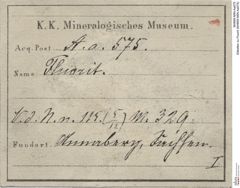 K. K. Mineralogisches Museum.
Acq. Post A. a. 575.
Name Fluorit.
V. d. N. n. 115. (5/12) W. 329.
Fundort. Annaberg, Sachsen.
I